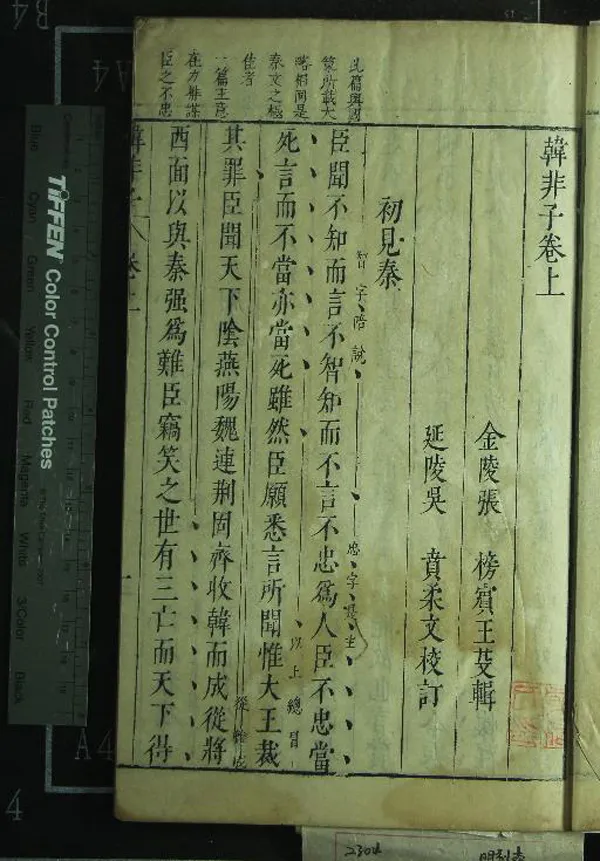 韓非子卷上
金陵張 榜賓王芟輯
延陵吳 賁柔文校訂
初見秦
臣聞不知而言不智知而不言不忠爲人臣不忠當
智字陪說
忠字是主
死言而不當亦當死雖然臣願悉言所聞惟大王裁
以上總冒
其罪臣聞天下陰燕陽魏連荆固齊收韓而成從將
西面以與秦强爲難臣竊笑之世有三亡而天下得
此篇與國
策所載大
略相同是
秦文之極
佳者
一篇主意
在力排謀
臣之不忠
韓非子 卷上
一
TIFFEN Color Control Patches
Blue
Cyan
Green
Yellow
Red
Magenta
White
3/Color
Black
B4
A4
A4
4
2304